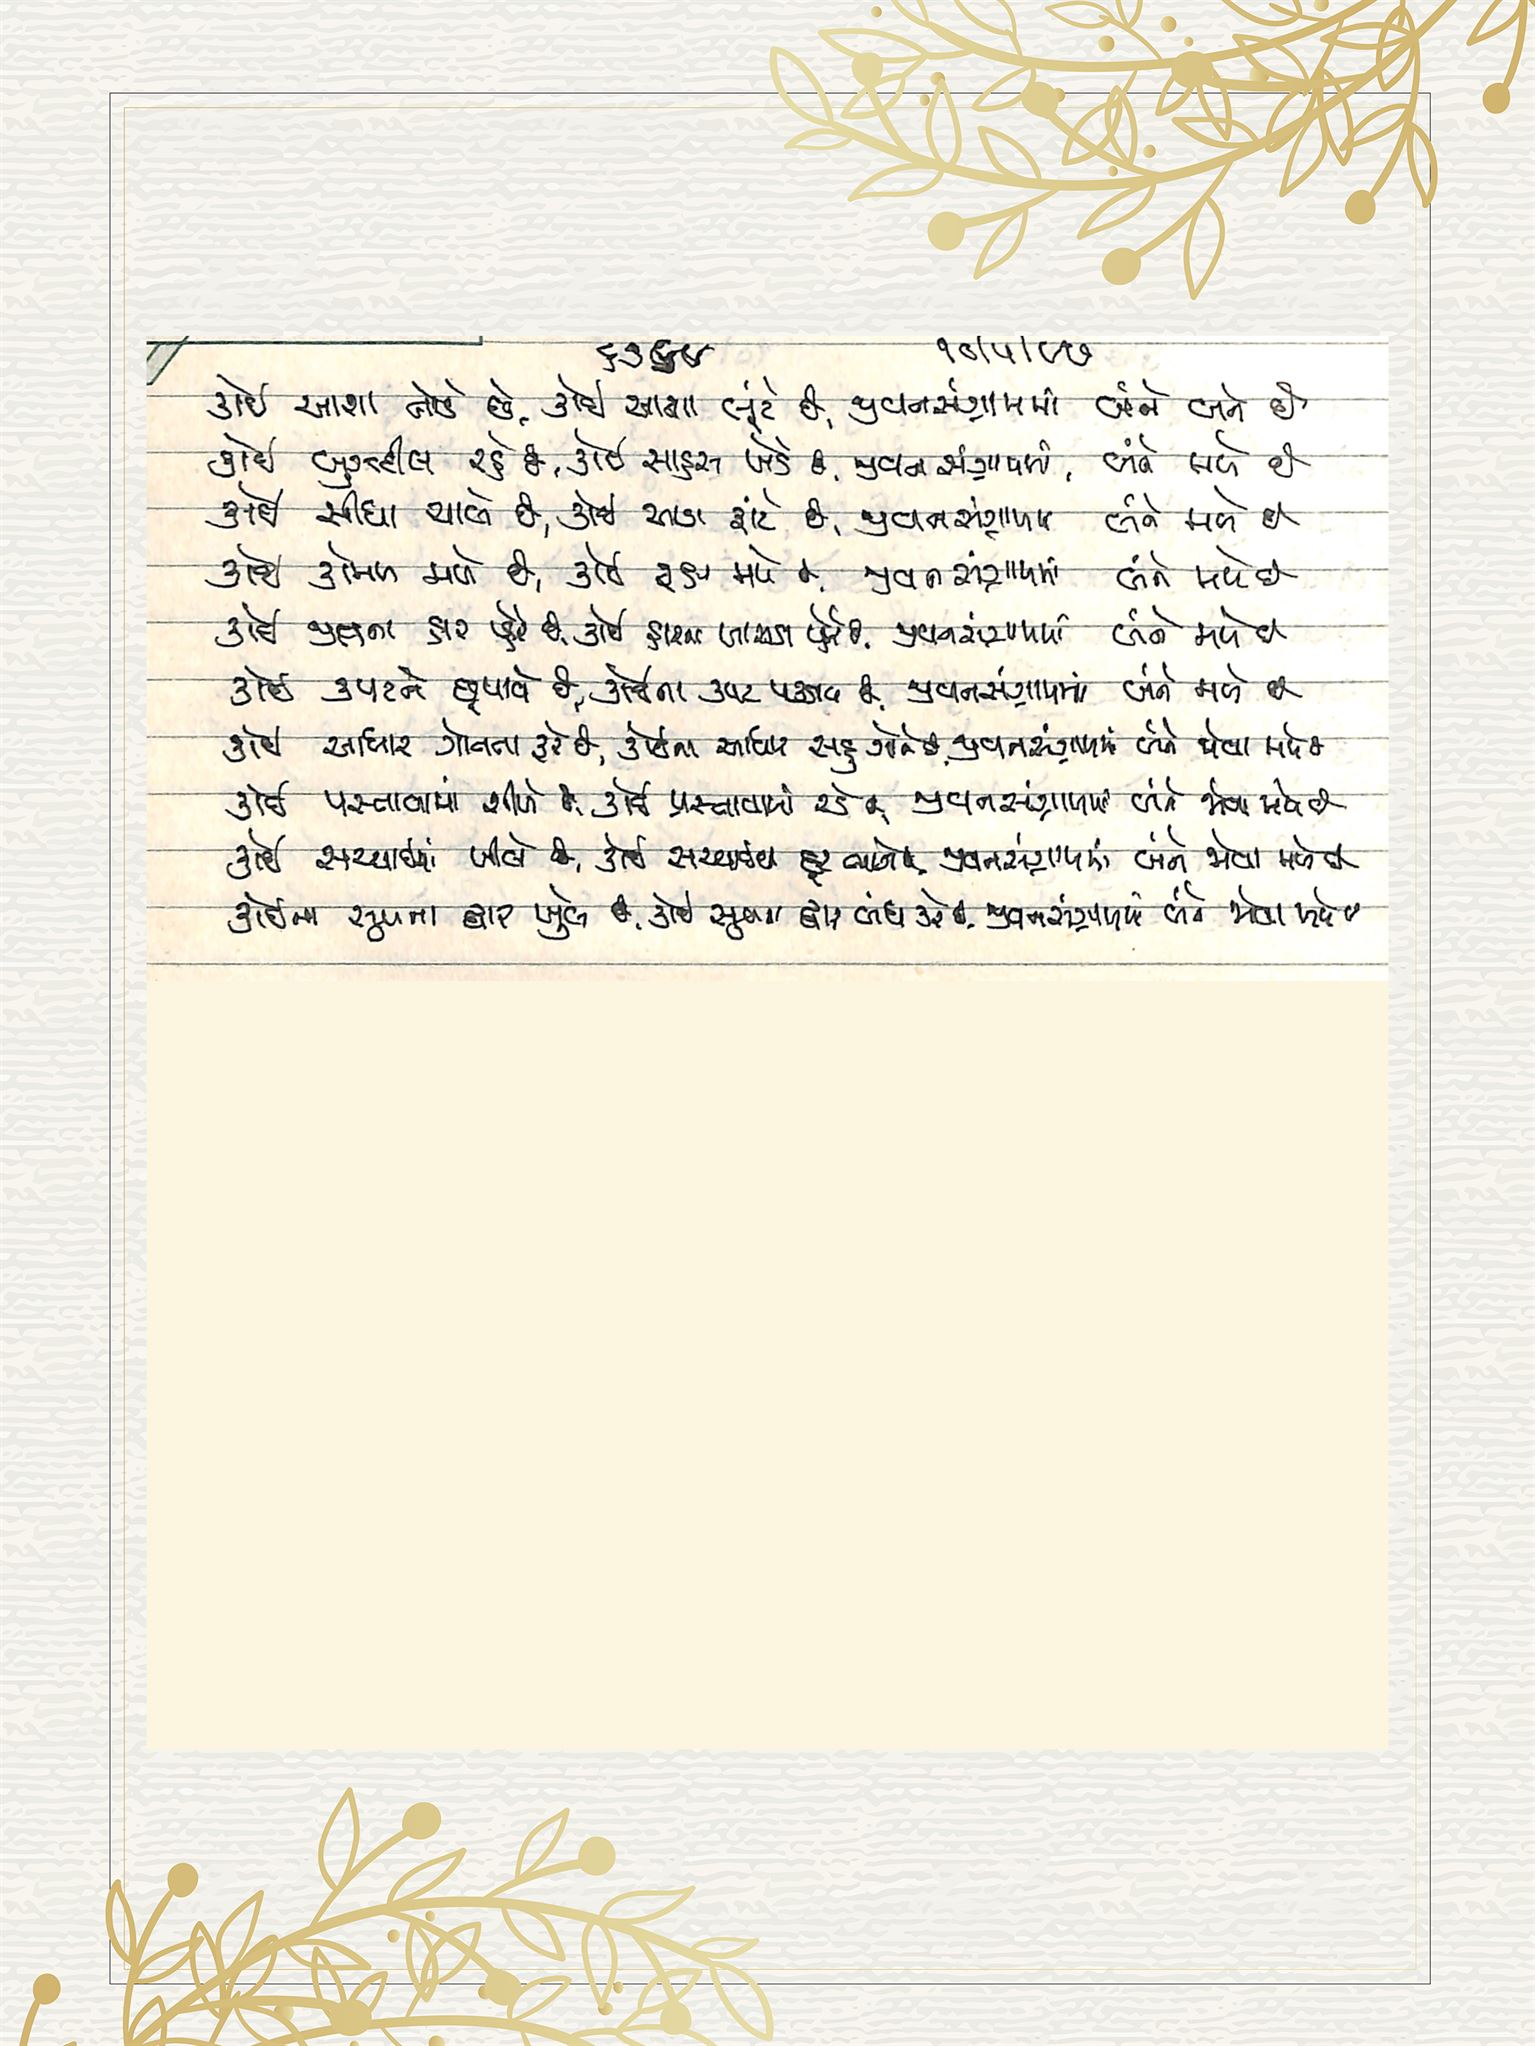 ૧૦/૫/૯૭
કોઈ આશા જોડે છે, કોઈ આશા લૂંટે છે, જીવનસંગ્રામમાં બંને બને છે
કોઈ બુઝદીલ રહે છે, કોઈ સાહસ ખેડે છે, જીવનસંગ્રામમાં, બંને મળે છે
કોઈ સીધા ચાલે છે, કોઈ આડા ફાંટે છે, જીવનસંગ્રામમાં બંને મળે છે
કોઈ કોમળ મળે છે, કોઈ રૂક્ષ મળે છે, જીવનસંગ્રામમાં બંને મળે છે
કોઈ જીતના હાર પહેરે છે, કોઈ હારના પહેરે છે, જીવનસંગ્રામમાં બંને મળે છે
કોઈ કપટને છૂપાવે છે, કોઈના કપટ પકડાય છે, જીવનસંગ્રામમાં બંને મળે છે
કોઈ આધાર ગોતતા ફરે છે, કોઈના આધાર સહુ ગોતે છે, જીવનસંગ્રામમાં બંને ભેવા મળે છે
કોઈ પસ્તાવામાં કોઈ પસ્તાવામાં રડે છે, જીવનસંગ્રામમાં બંને ભેવા મળે છે
કોઈ સચ્ચાઈમાં ખીલે છે, કોઈ સચ્ચાઈથી દૂર ભાગે છે, જીવનસંગ્રામમાં બંને ભેવા મળે છે
કોઈના સુખના દ્વાર ખુલે છે, કોઈ સુખના દ્વાર બંધ કરે છે, જીવનસંગ્રામમાં બંને ભેવા મળે છે